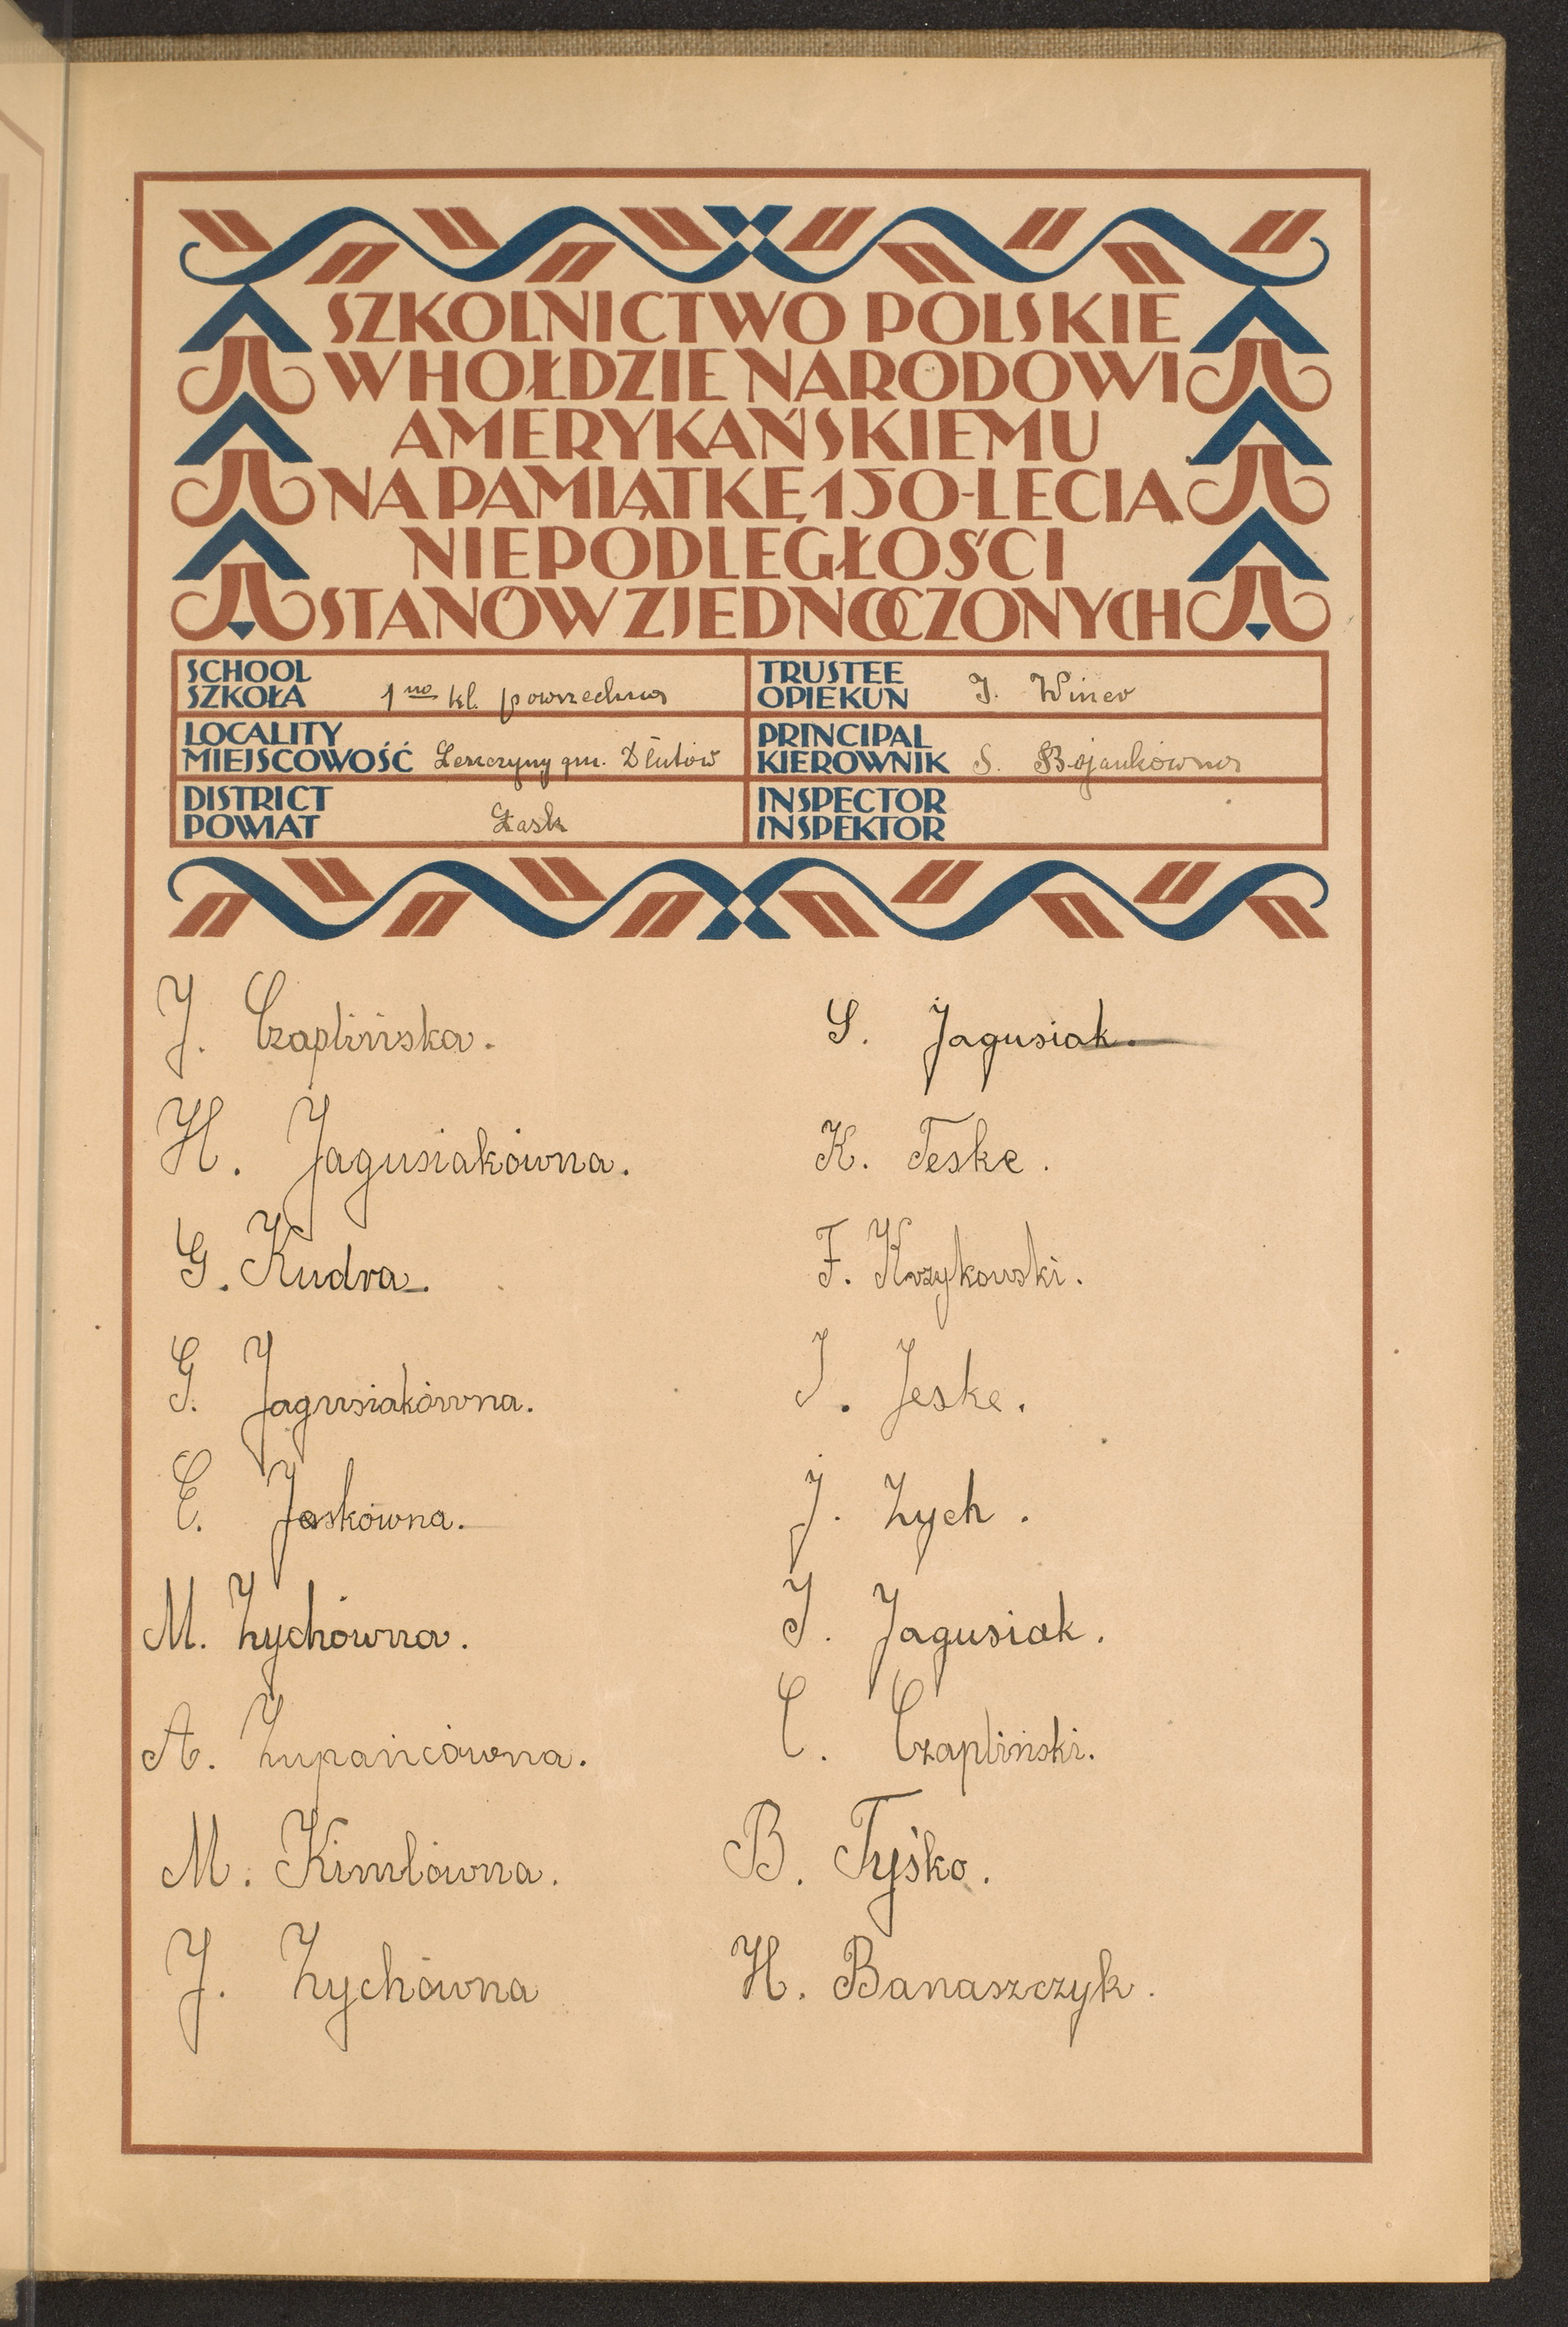 SZKOLNICTWO POLSKIE
W HOŁDZIE NARODOWI
AMERYKAŃSKIEMU
NA PAMIĄTKĘ 150-LECIA
NIEPODLEGŁOŚCI
STANÓW ZJEDNOCZONYCH
SCHOOL
SZKOŁA 1no kl. powszechna
TRUSTEE
OPIEKUN J. Winer
LOCALITY
MIEJSCOWOŚĆ Leszczyny gm. Dłutów
PRINCIPAL
KIEROWNIK S. Bojankówna
DISTRICT
POWIAT Łask
INSPECTOR
INSPEKTOR
J. Czaplińska.
H. Jagusiakówna.
G. Kudra.
G. Jagusiakówna.
E. Jaskówna.
M. Zychówna.
A. Zupańcówna.
M. Kimlówna.
J. Zychówna
S. Jagusiak.
K. Teske.
F. Krzykowski.
J. Jeske.
J. Zych.
J. Jagusiak.
C. Czapliński.
B. Tyśko.
H. Banaszczyk.